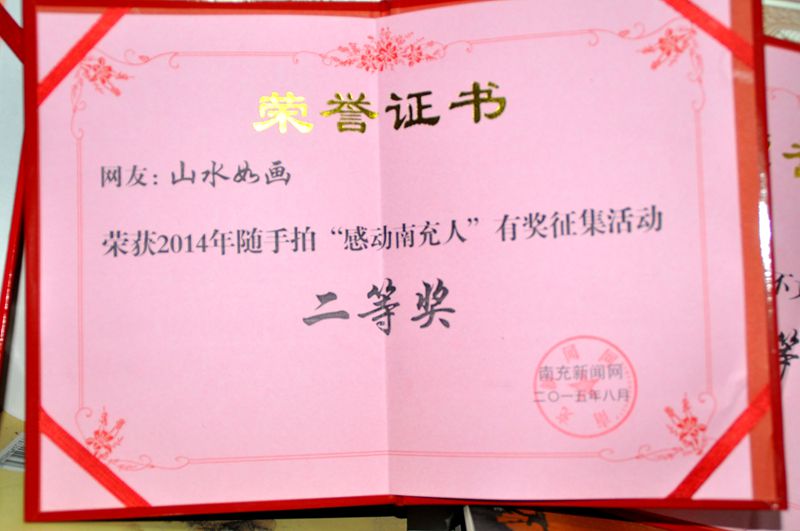 荣誉证书
网友：山水如画
荣获2014年随手拍“感动南充人”有奖征集活动
二等奖
南充新闻网
二〇一五年八月